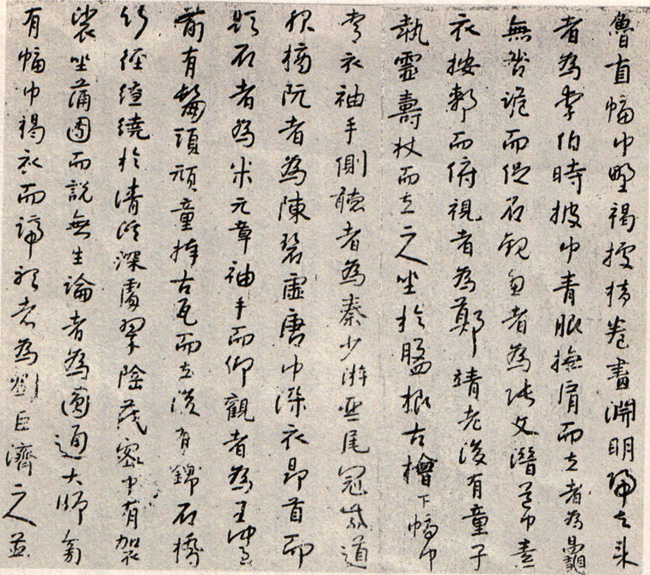 魯直幅巾野褐據橫卷畫淵明歸去來
者為李伯時披巾青服撫肩而立者為晁
無咎跪而捉石觀畫者為張文潛道巾素
衣按膝而俯視者為鄭靖老後有童子
執靈壽杖而立二人坐於盤根古檜下幅巾
青衣袖手側聽者為秦少游琴尾冠紫道
服摘阮者為陳碧虛唐巾深衣昂首而
題石者為米元章袖手而仰觀者為王仲至
前有鬅頭頑童捧古瓦而立後有錦石橋
竹徑繚繞於清溪深處翠陰茂密中有袈
裟坐蒲團而說無生論者為圓通大師旁
有幅巾褐衣而諦聽者為劉巨濟二人並